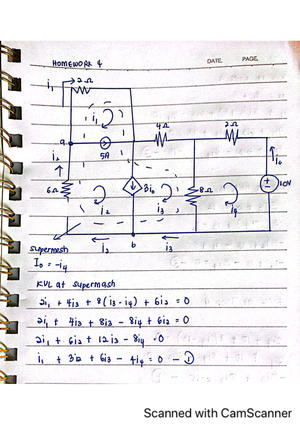 HOMEWORK 4
DATE PAGE
i₁ 2Ω
i₁
4Ω 2Ω
a 5A
i₂ i₀
6Ω 3i₀ 8Ω 10V
i₂ i₃ i₄
supermesh i₂ b i₃
I₀ = -i₄
KVL at supermesh
2i₁ + 4i₃ + 8(i₃-i₄) + 6i₂ = 0
2i₁ + 4i₃ + 8i₃ - 8i₄ + 6i₂ = 0
2i₁ + 6i₂ + 12i₃ - 8i₄ = 0
i₁ + 3i₂ + 6i₃ - 4i₄ = 0 - ①
Scanned with CamScanner